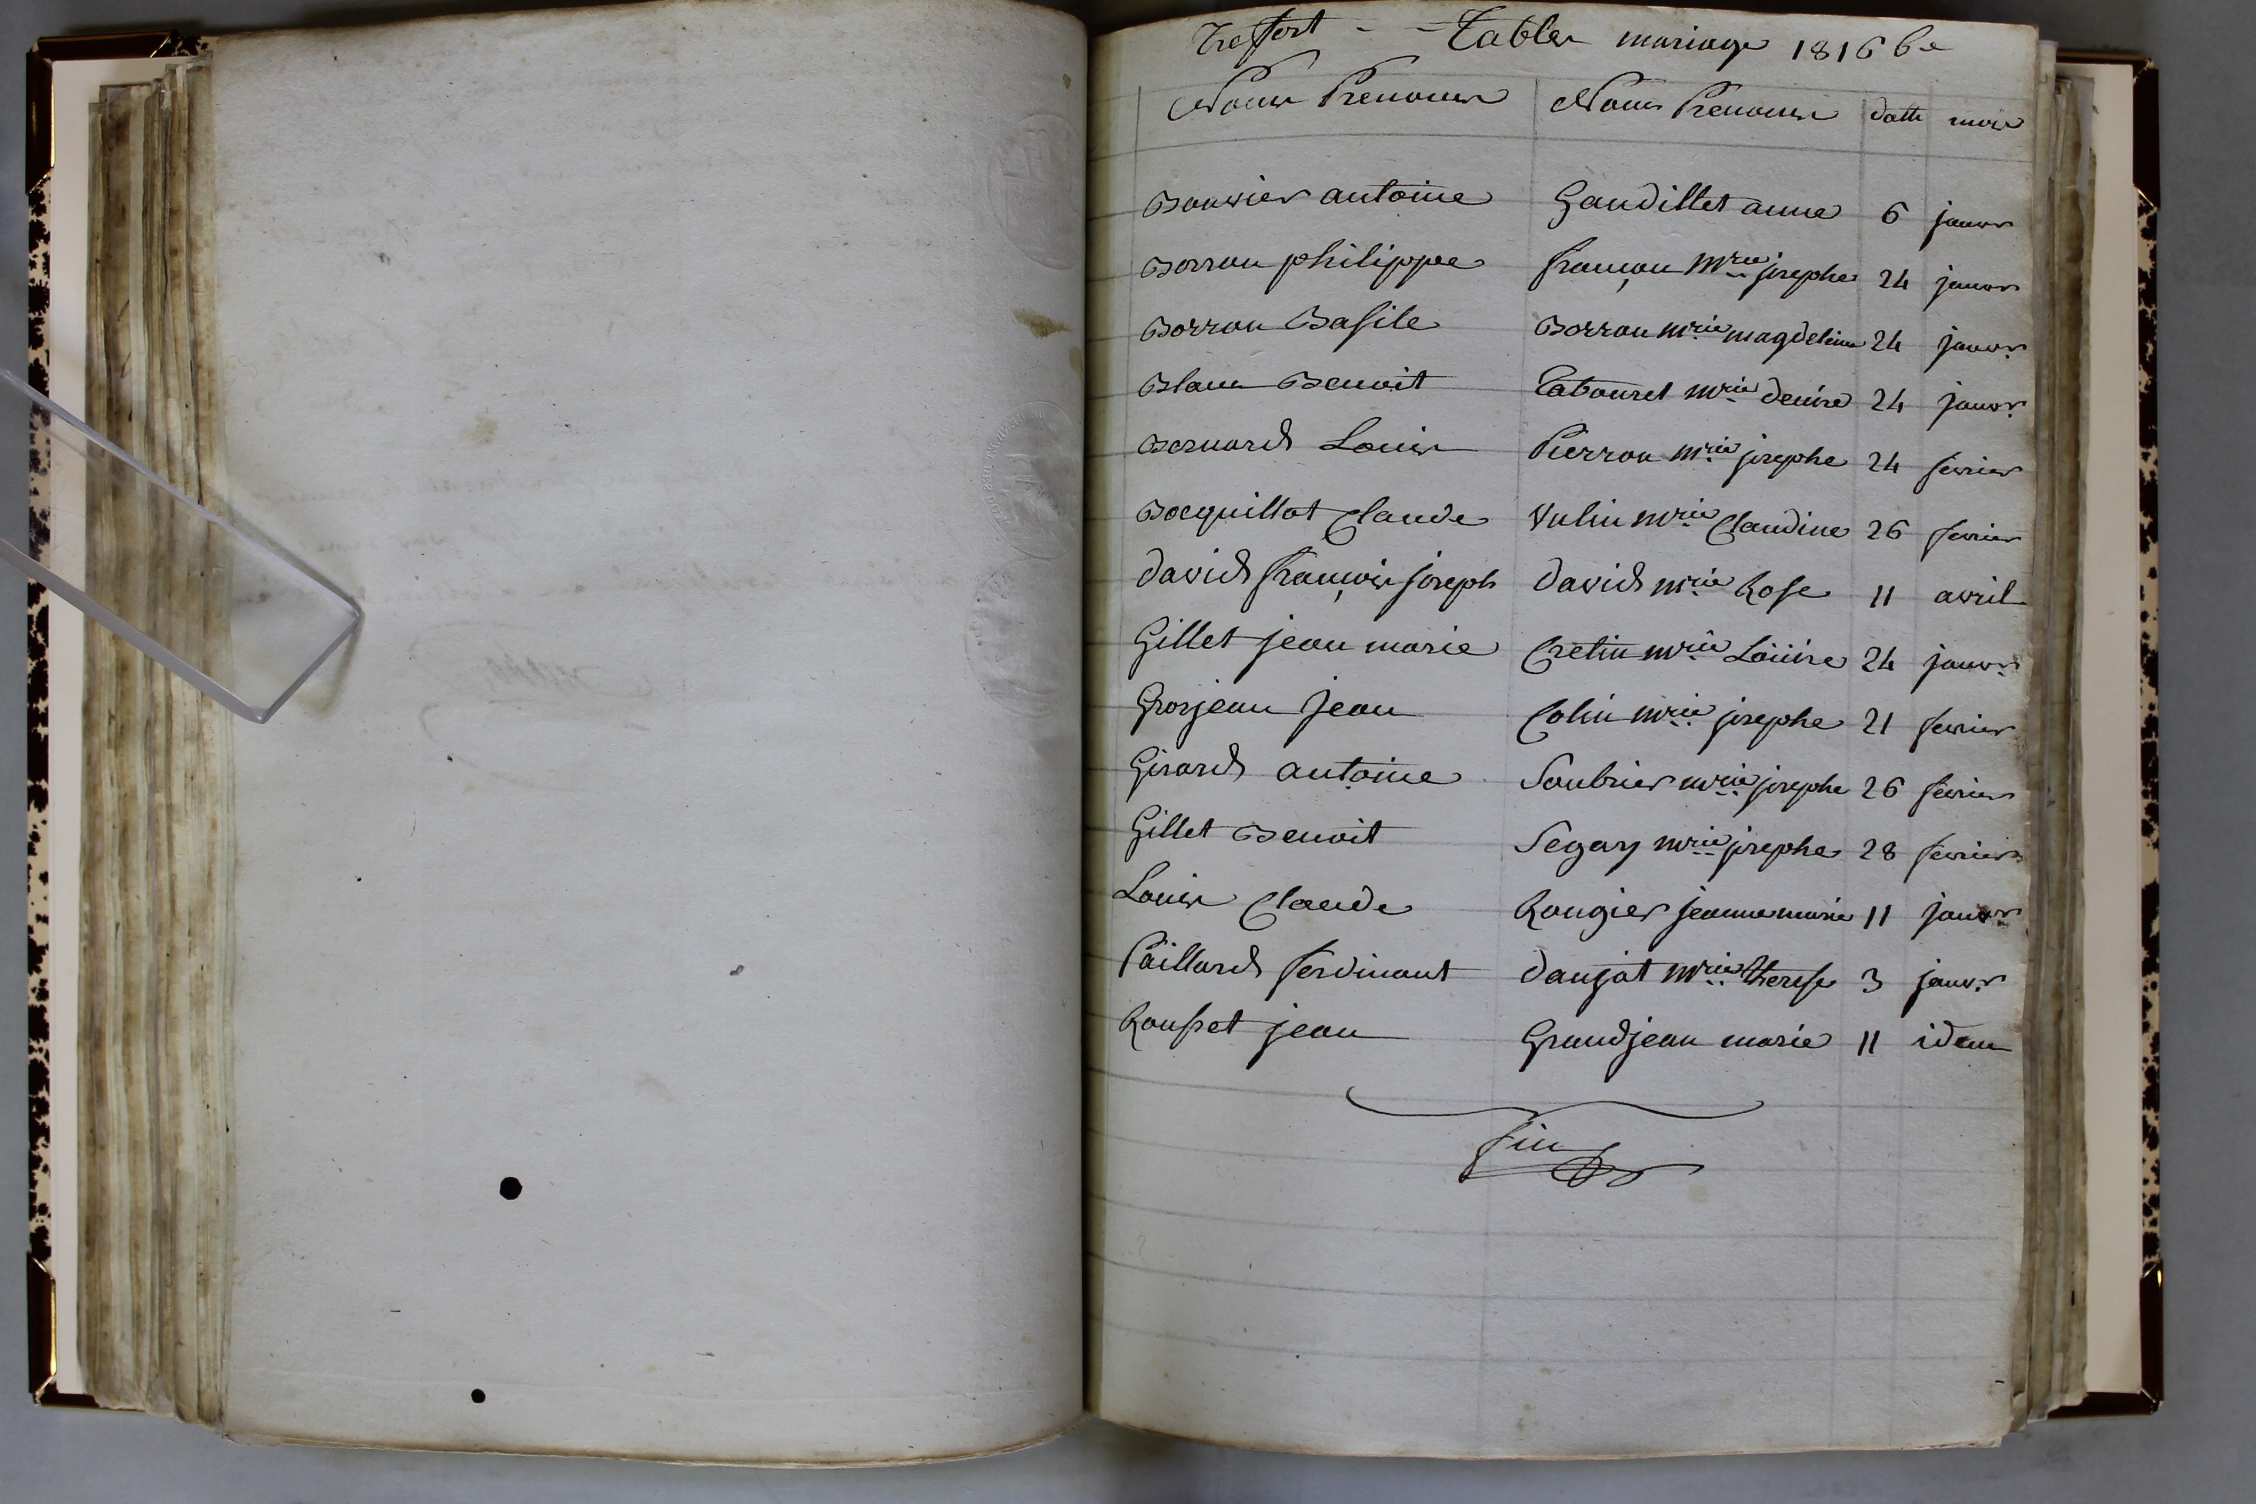 Treffort - - Tables mariage 1816 6e
Noms Prenoms Noms Prenoms datte mois
Bouvier antoine Gandillet anne 6 janvr
Borron philippe françon mrie josephe 24 janvr
Borron Basile Borron mrie magdeleine 24 janvr
Blanc Benoit Tabouret mrie denise 24 janvr
Bernard Louis Pierron mrie josephe 24 fevrier
Bocquillot Claude Vulin mrie Claudine 26 fevrier
david françois joseph david mrie Rose 11 avril
Gillet jean marie Cretin mrie Louise 24 janvr
Grosjean jean Colin mrie josephe 21 fevrier
Girard antoine Soubrier mrie josephe 26 fevrier
Gillet Benoit Segay mrie josephe 28 fevrier
Louis Claude Rougier jeanne marie 11 janvr
Paillard ferdinant daujat mrie therese 3 janvr
Rousset jean Grandjean marie 11 idem
fin